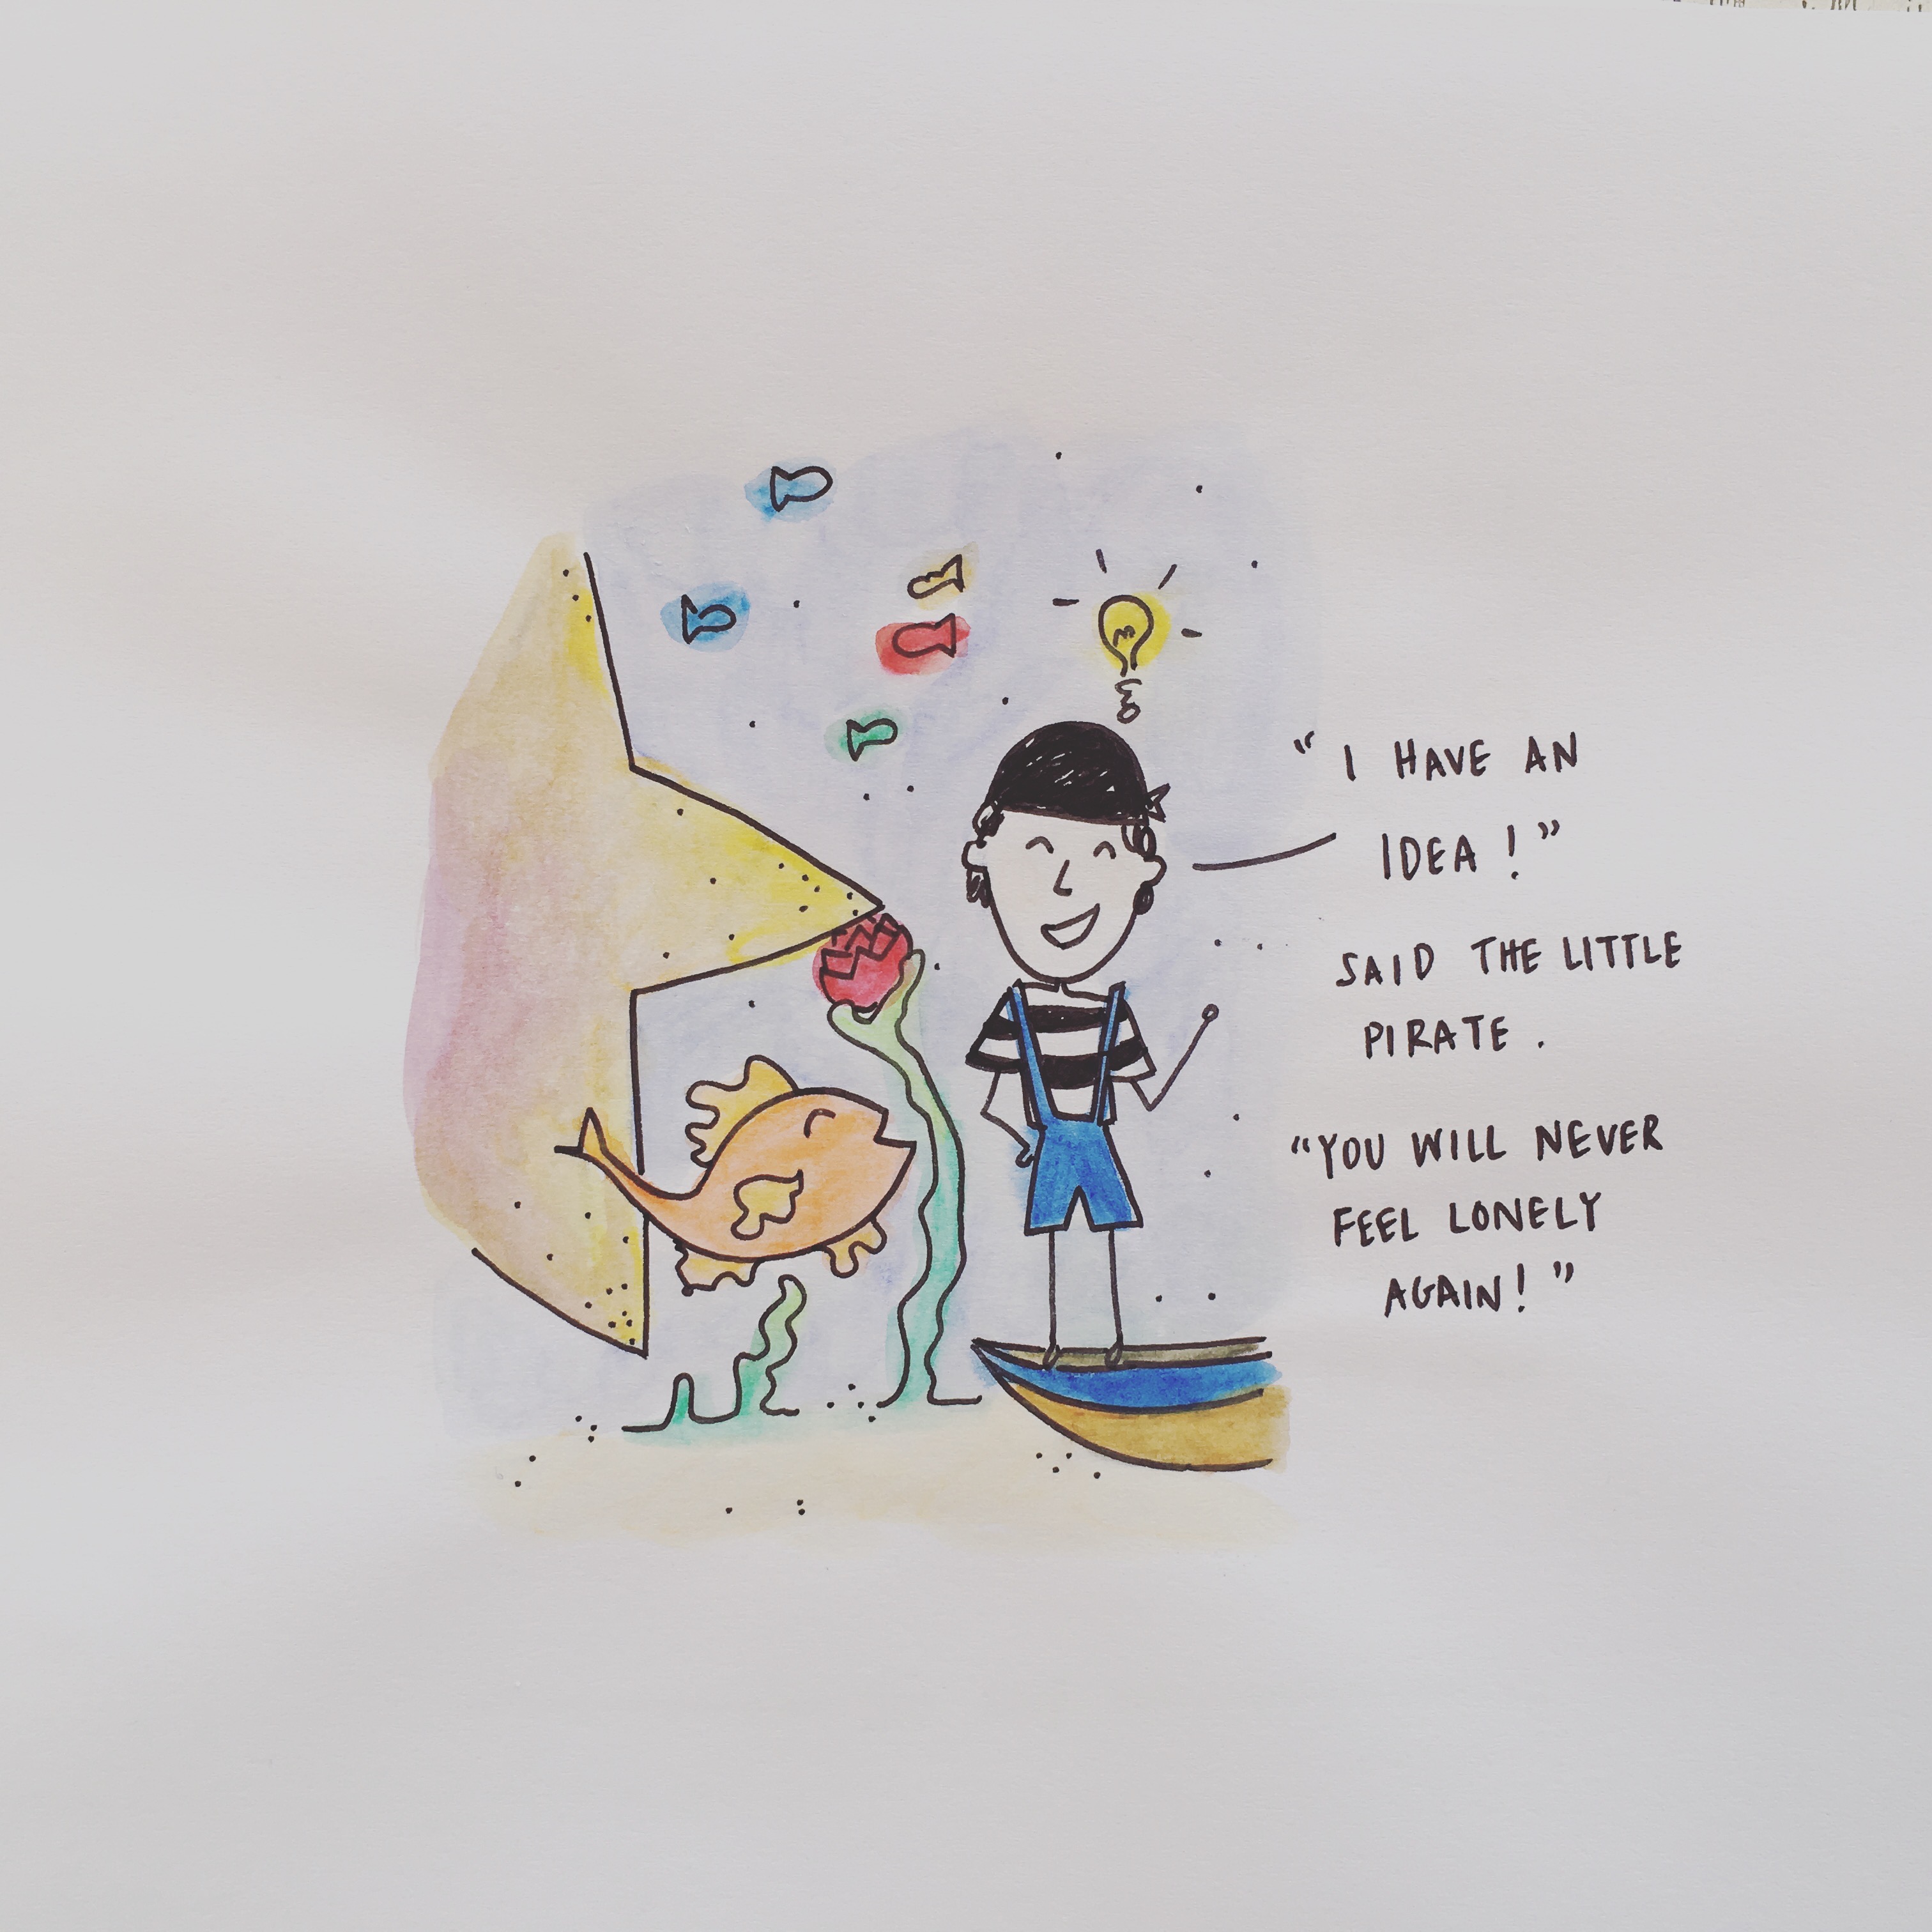 “ I HAVE AN
IDEA ! ”
SAID THE LITTLE
PIRATE .
“YOU WILL NEVER
FEEL LONELY
AGAIN! ”